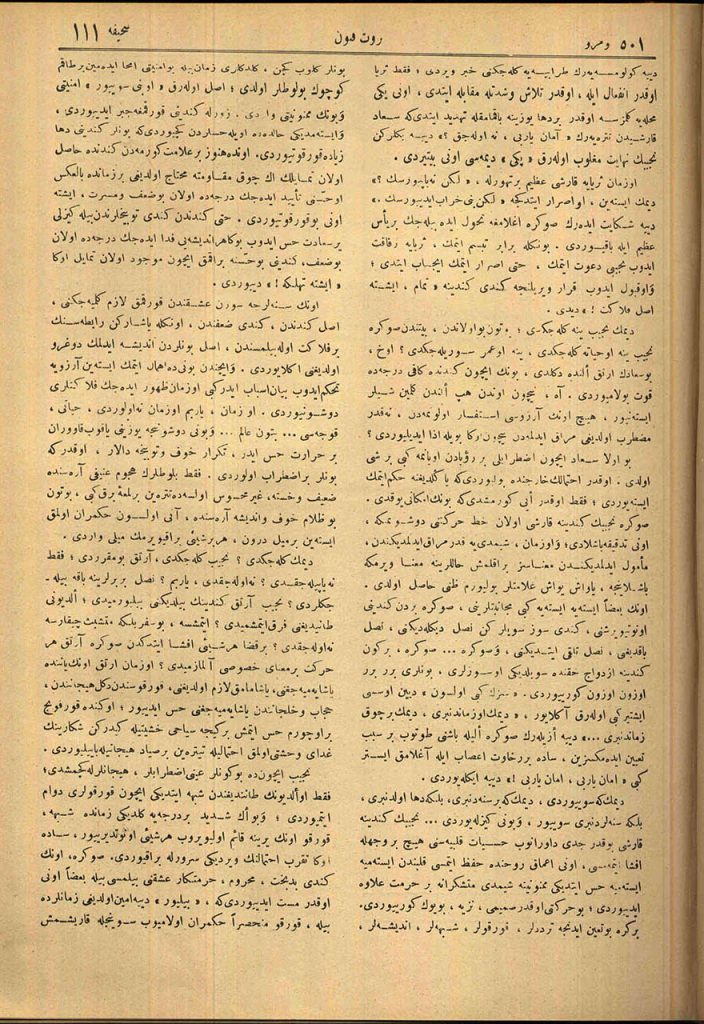 ٥٠١ ومرو
روت فنون
صحیفه ١١١
دییه کولومسه‌یه‌رك طرابییه‌یه کله‌جکنی خبر ویردی ؛ فقط ثریا
اوقدر انفعال ایله ، اوقدر تلاش وشدتله مقابله ایتدی ، اونی یکی
محله‌یه کلزسه اوقدر بردها یوزینه باقمامقله تهدید ایتدی‌که سعاد
قارشیدن تتره‌یه‌رك « آمان یاربی ، نه اوله‌جق ؟» دییه بکلرکن
نجیبك نهایت مغلوب اوله‌رق « پکی » دیمه‌سی اونی بیتیردی .
اوزمان ثریایه قارشی عظیم بر تهورله ، « لکن نه‌یاپیورسك ؟»
دیمك ایسته‌ین ، اواصرار ایتدکجه « لکن بنی خراب ایدییورسك ..»
دییه شکایت ایده‌رك صوکره اغلامغه تحول ایده بیله‌جك بریأس
عظیم ایله باقیوردی . بونکله برابر تبسم ایتمك ، ثریایه رفاقت
ایدوب نجیبی دعوت ایتمك ، حتی اصرار ایتمك ایجاب ایتدی ؛
واوقبول ایدوب قرار ویریلنجه کندی کندینه « تمام ، ایشته
اصل فلاکت !» دیدی .
دیمك نجیب ینه کله‌جکدی ؛ بوتون بواولاندن ، بیتندن صوکره
نجیب ینه اوحیاته کله‌جکدی ، ینه اوعمر سوریله‌جکدی ؟ اوخ ،
بوسعادك ارتق ألنده دکلدی ، بونك ایچون کندنده کافی درجه‌ده
قوت بولامیوردی . آه ، نیچون اوندن هپ ألندن کلمین شیلر
ایسته‌نیور ، هییچ اونك آرزوسی استفسار اولونمه‌دن ، نه‌قدر
مضطرب اولدیغی مراق ایدلمه‌دن نیچون ارکا بویله اذا ایدیلیوردی ؟
بو اولا سعاد ایچون اضطرابلی بر رؤیادن اویانمه کبی بر شی
اولدی . اوقدر احتمالك خارجنده بولیوردی‌که یاکلدیغنه حکم ایتمك
ایسته‌یوردی ؛ فقط اوقدر أیی کورمشدی‌که بونك امکانی یوقدی .
صوکره نجیبك کندینه قارشی اولان خط حرکتنی دوشونمکه ،
اونی تدقیقه باشلادی ؛ واوزمان ، شیمدی‌یه قدر مراق ایدلمدیکندن ،
معناسز براقلمش حاللرینه معنا ویرمکه
باشلانجه ، یاواش یواش علامتلر بولیورم ظنی حاصل اولدی .
اونك بعضاً ایسته‌یه ایسته‌یه کبی مجانبتلرینی ، صوکره بردن کندینی
اونوتیویرشنی ، کندی سوز سویلر کن نصل دیکله‌دیکنی ، نصل
باقدیغنی ، نصل تلقی ایتدیکنی ، وصوکره ... صوکره ، برکون
کندینه ازدواج حقنده سویلدیکی اوسوزلری ، بونلری برر برر
اوزون اوزون کورییوردی .
ایشتیرکبی اوله‌رق آکلایور ، « دیمك اوزماندنبری ، دیمك برچوق
زماندنبری ...» دییه أزیله‌رك صوکره ألیله باشنی طوتوب بر سبب
تعیین ایده‌مکسزین ، ساده بررخاوت اعصاب ایله آغلامق ایستر
کبی « امان یاربی ، امان یاربی !» دییه ایکله‌یوردی .
دیمك‌که سوییوردی ، دیمك‌که برسنه‌دنبری ، بلکه‌دها اولدنبری ،
بلکه سنه‌لردنبری سوییور ، وبونی کیزله‌یوردی ... نجیبك کندینه
قارشی بوقدر جدی داورانوب حسیات قلبیه‌سنی هییچ بروجهله
افشا ایتمه‌سی ، اونی اعماق روحنده حفظ ایتمسی قلبندن ایسته‌میه
ایسته‌میه حس ایتدیکی ممنونیته شیمدی متشکرانه بر حرمت علاوه
ایدییوردی ؛ بوحرکتی اوقدر صمیمی ، نزیه ، بویوك کورییوردی .
برکره بوتعین ایدنجه ترددلر ، قورقولر ، شبهه‌لر ، اندیشه‌لر ،
بونلر کلوب کچن ، کلدکاری زمان بیله بوامنیتی امحا ایده‌مین برطاقم
کوچوك بولوطلر اولدی ؛ اصل اوله‌رق « اونی سوییور » امنیتی
وبونك ممنونیتی واردی . زورله کندینی قورقمغه جبر ایدییوردی ،
وایسته‌مدیکی حالده‌ده اویله‌حسلردن کچیوردی‌که بونلر کندینی دها
زیاده قورقوتیوردی . اونده‌هنوز برعلامت کورمه‌دن کندنده حاصل
اولان تمایلك اك چوق مقاومته محتاج اولدیغی برزمانده بالعکس
اوحسنی تأیید ایده‌جك درجه‌ده اولان بوضعف ومسرت ، ایشته
اونی بوقورقوتیوردی . حتی کندندن کندی توبیخلرندن بیله کیزلی
برسعادت حس ایدوب بوکاهراندیشه‌یی فدا ایده‌جك درجه‌ده اولان
بوضعف ، کندینی بوحسنه براقمق ایچون موجود اولان تمایل اوکا
« ایشته تهلکه !» دییوردی .
اونك سنه‌لرجه سورن عشقندن قورقمق لازم کلیه‌جکنی ،
اصل کندندن ، کندی ضعفندن ، اونکله یاشارکن رابطه‌سنك
برفلاکت اوله‌بیلمسندن ، اصل بونلردن اندیشه ایدلمك دوغرو
اولدیغنی اکلایوردی . وایچندن بونی‌ده اهمال ایتمك ایسته‌ین آرزویه
تحکم ایدوب بیان اسباب ایدرکبی اوزمان ظهور ایده‌جك فلاکتلری
دوشونیوردی . او زمان ، یاربم اوزمان نه‌اولوردی ، حیاتی ،
قوجه‌سی ... بتون عالم ... وبونی دوشوننجه یوزینی یاقوب قاووران
بر حرارت حس ایدر ، تکرار خوف وتوبیخه دالار ، اوقدرکه
بونلر براضطراب اولوردی . فقط بلوطلرك هجوم عنیفی آره‌سنده
ضعف وخسته ، غیرمحسوس اولسه‌ده تتره‌ین برلمعهٔ برق کبی ، بوتون
بوظلام خوف واندیشه آره‌سنده ، آنی اولسون حکمران اولمق
ایسته‌ین برمیل درون ، هرشیئی براقیویرمك میلی واردی .
دیمك کله‌جکدی ؟ نجیب کله‌جکدی ، آرتق بومقرردی ؛ فقط
نه‌یاپیله جقدی ؟ نه‌اوله‌جقدی ، یاربم ؟ نصل بربرلرینه باقه بیله‌
جکلردی ؟ نجیب آرتق کندینك بیلدیکنی بیلیورمیدی ؛ ألدیونی
طانیدیغنی فرق‌ایتمشمیدی ؟ ایتمشسه ، بوسفربلکه متشبث چیقارسه
نه‌اوله‌جقدی ؟ برقضا هرشیئی افشا ایتدکدن صوکره آرتق هر
حرکت برمعنای خصوصی آلمازمیدی ؟ اوزمان ارتق اونك یاننده
یاشایه‌میه‌جغنی ، یاشامامق لازم اولدیغنی ، قورقوسندن دکل هیجانندن ،
حجاب وخلجانندن یاشایه‌میه‌جغنی حس ایدییور ؛ اوکنده قورقونج
براوچورم حس ایتمش برکیجه سیاحی خشیتیله کیدرکن شکارینك
غدای وحشتی اولمق احتمالیله تیتره‌ین برصیاد هیجانیله باییلیوردی .
نجیب ایچون‌ده بوکونلر عینی اضطرابلر ، هیجانلرله کچمشدی ؛
فقط أولدیونك طانندیغندن شبهه ایتدیکی ایچون قورقولری دوام
ایتمیوردی ؛ وبوأك شدید بردرجه‌یه کلدیکی زمانده شبهه ،
قورقو اونك یرینه قائم اولیویروب هرشیئی اونوتدیریییور ، ساده
اوکا تقرب احتمالنك ویردیکی سرورله براقیوردی . صوکره ، اونك
کندی بدبخت ، محروم ، حرمتکار عشقنی بیلمسی بیله بعضاً اونی
اوقدر مست ایدییوردی‌که ، « بیلیور » دییه‌امین اولدیغی زمانلرده
بیله ، قورقو منحصراً حکمران اولمیوب سوینجله قاریشمش